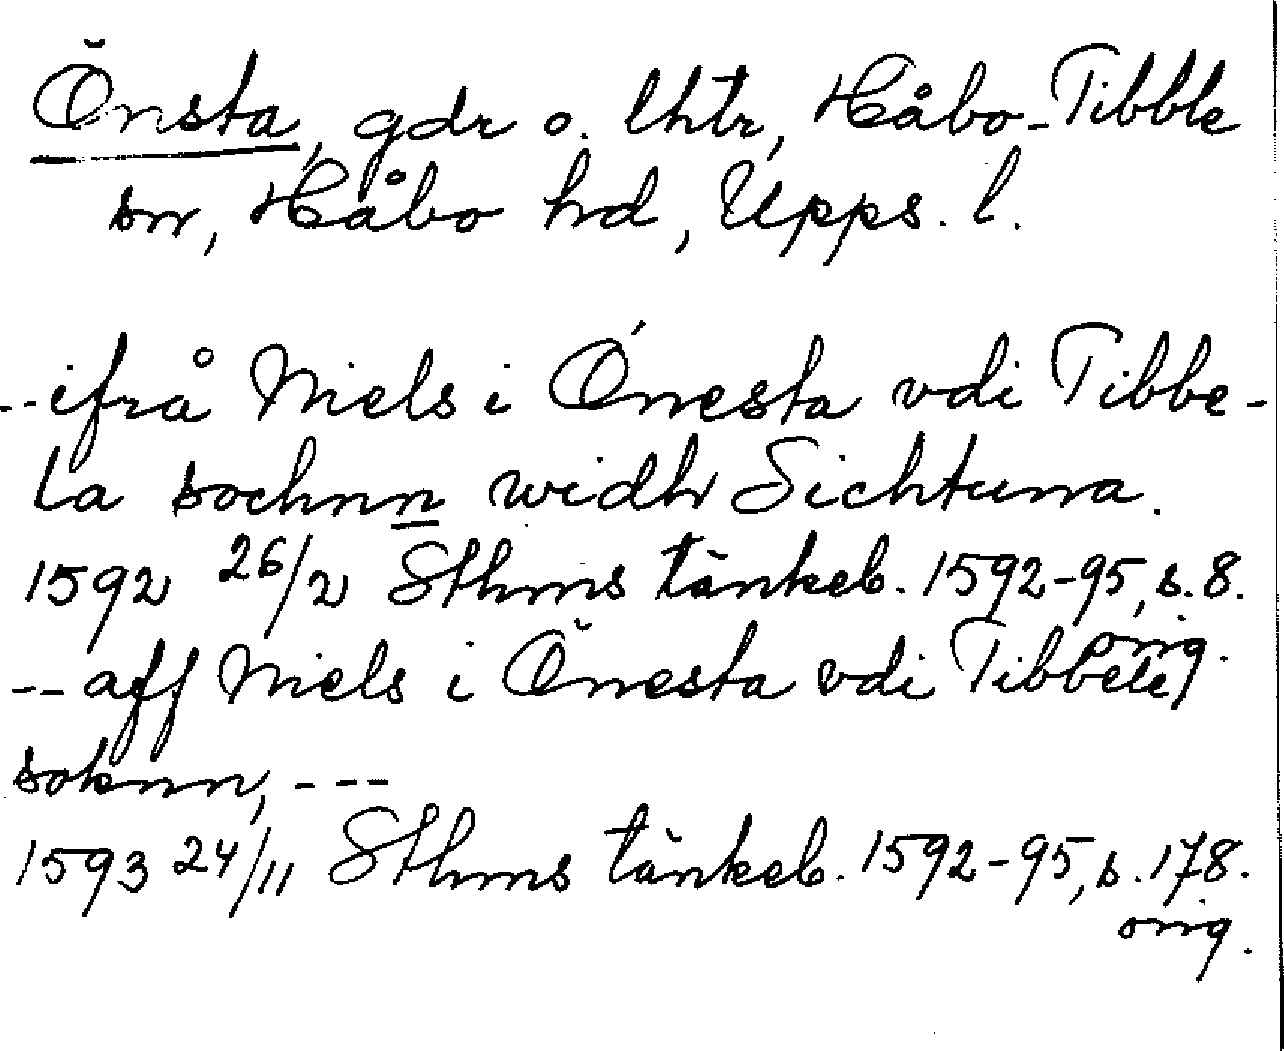 Önsta, gdr o. lht̄r, Håbo-Tibble
sn, Håbo hd, Upps. l.
--ifrå Niels i Ónnesta vdi Tibbe-
la sochnn widh Sichtuna.
1592 26/2 Sthms tänkeb. 1592-95, s. 8.
orig.
-- aff Niels i Önnesta vdi Tibbele
soknn, ---
1593 24/11 Sthms tänkeb. 1592-95, s. 178.
orig.